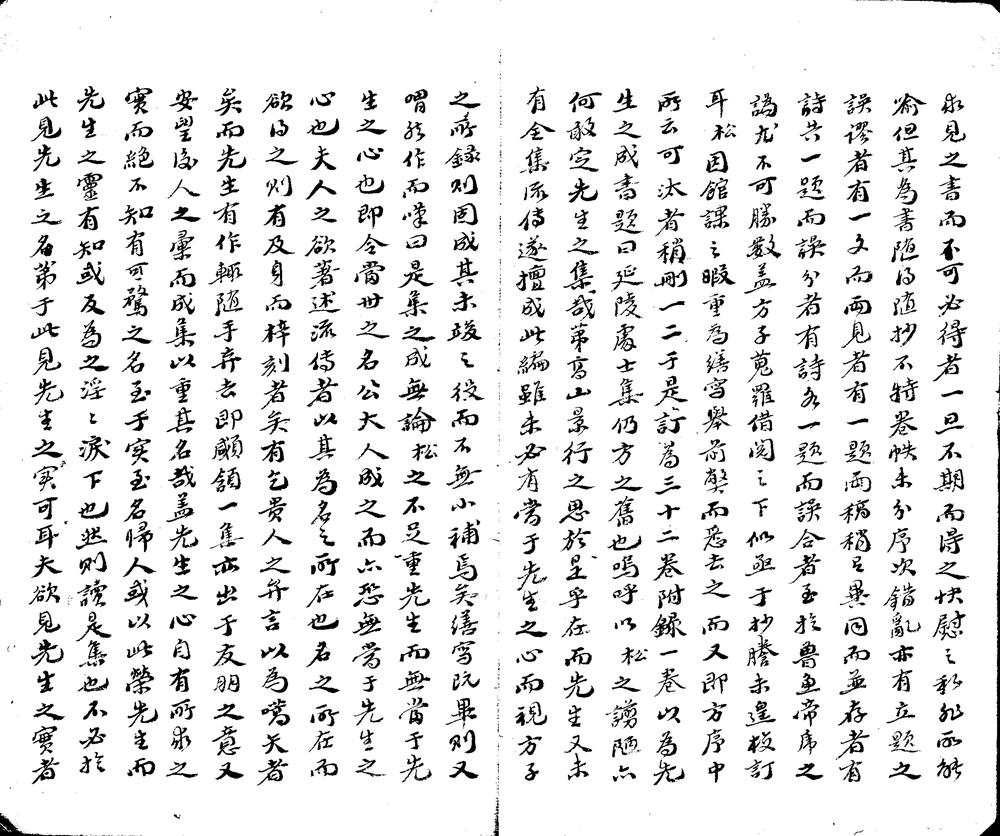 求見之書而不可必得者一旦不期而得之快慰之私非所能
喻但其為書隨得隨抄不特卷帙未分序次錯亂亦有立題之
誤謬者有一文而兩見者有一題兩稿稍呂異同而並存者有
詩共一題而誤分者有詩各一題而誤合者至於魯魚帝虎之
譌尤不可勝數蓋方子蒐羅借閱之下似亟于抄謄未遑校訂
耳松因館課之暇重為繕寫舉前獘而悉去之而又即方序中
所云可汰者稍刪一二于是訂為三十二卷附錄一卷以為先
生之成書題曰延陵處士集仍方之舊也嗚呼以松之譾陋亦
何敢定先生之集哉第高山景行之思於是乎在而先生又未
有全集流傳遂擅成此編雖未必有當于先生之心而視方子
之所錄則固成其未竣之役而不無小補焉矣繕寫既畢則又
喟然作而嘆曰是集之成無論松之不足重先生而無當于先
生之心也即令當世之名公大人成之而亦恐無當于先生之
心也夫人之欲著述流傳者以其為名之所在也名之所在而
欲得之則有及身而梓刻者矣有乞貴人之弁言以為嚆矢者
矣而先生有作輒隨手弃去即顧頷一集亦出于友朋之意又
安望後人之彙而成集以重其名哉蓋先生之心自有所求之
實而絕不知有可騖之名至于實至名歸人或以此榮先生而
先生之靈有知或反為之浮之淚下也然則讀是集也不必於
此見先生之名第于此見先生之實可耳夫欲見先生之實者